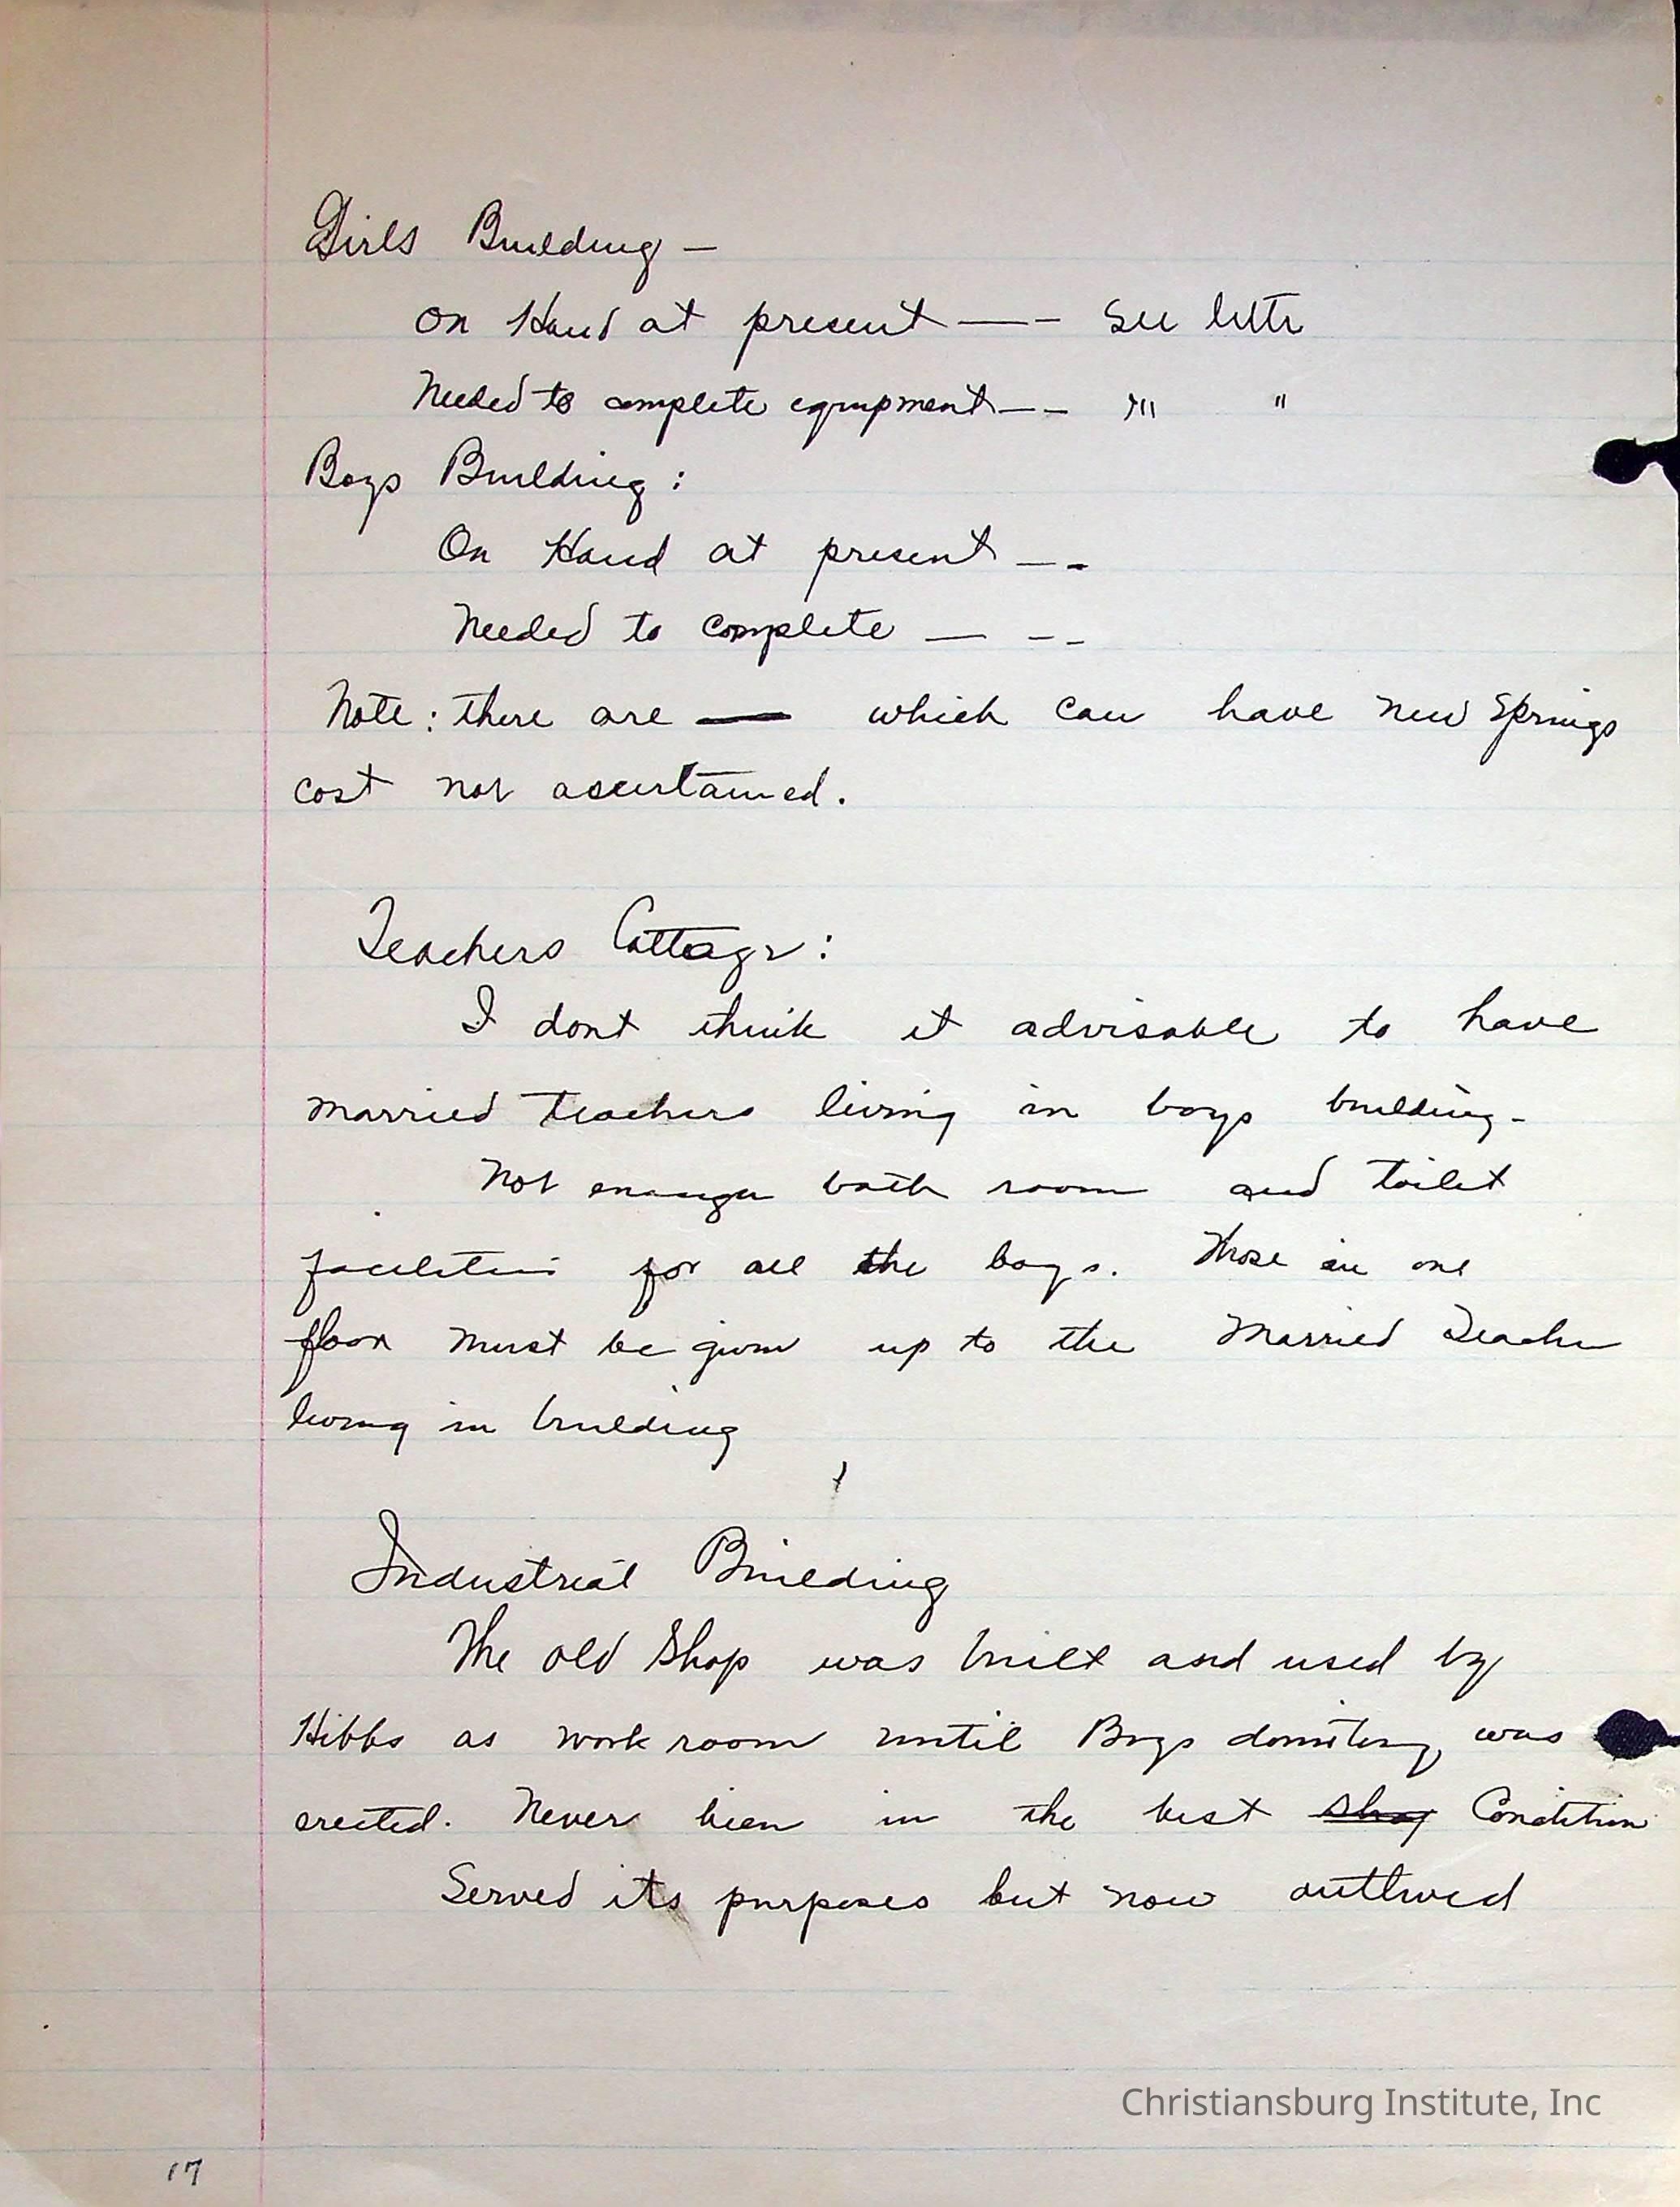 Girls Building —
On Hand at present — — See letter
Needed to complete equipment — — " "
Boys Building :
On Hand at present — -
Needed to complete — - -
Note : there are — which can have new springs
cost not ascertained.
Teachers Cottage :
I dont think it advisable to have
married teachers living in boys building -
Not enough bath room and toilet
facilities for all the boys. Those in one
floor must be given up to the Married Teacher
living in building
Industrial Building
The old Shop was built and used by
Hibbs as work room until Boys dormitory was
erected. Never been in the best shop Condition
Served its purposes but now outlived
Christiansburg Institute, Inc
17